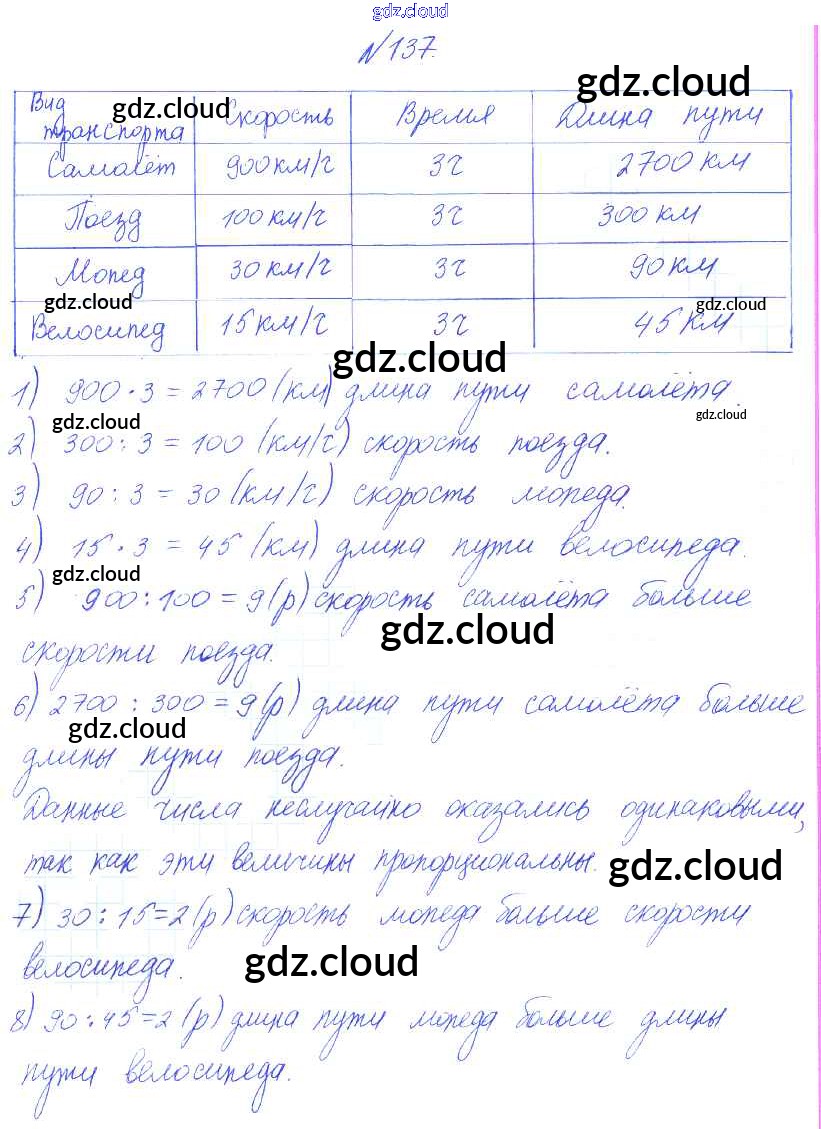 gdz.cloud
№137.
gdz.cloud
Вид gdz.cloud Скорость Время Длина пути
транспорта
Самолёт 900 км/ч 3 ч 2700 км
Поезд 100 км/ч 3 ч 300 км
Мопед 30 км/ч 3 ч 90 км
gdz.cloud gdz.cloud
Велосипед 15 км/ч 3 ч 45 км
gdz.cloud
1) 900 · 3 = 2700 (км) длина пути самолёта
gdz.cloud gdz.cloud
2) 300 : 3 = 100 (км/ч) скорость поезда.
3) 90 : 3 = 30 (км/ч) скорость мопеда.
4) 15 · 3 = 45 (км) длина пути велосипеда.
gdz.cloud
5) 900 : 100 = 9 (р) скорость самолёта больше
gdz.cloud
скорости поезда.
6) 2700 : 300 = 9 (р) длина пути самолёта больше
gdz.cloud
длины пути поезда.
Данные числа неслучайно оказались одинаковыми,
так как эти величины пропорциональны.
gdz.cloud
7) 30 : 15 = 2 (р) скорость мопеда больше скорости
велосипеда.
gdz.cloud
8) 90 : 45 = 2 (р) длина пути мопеда больше длины
пути велосипеда.